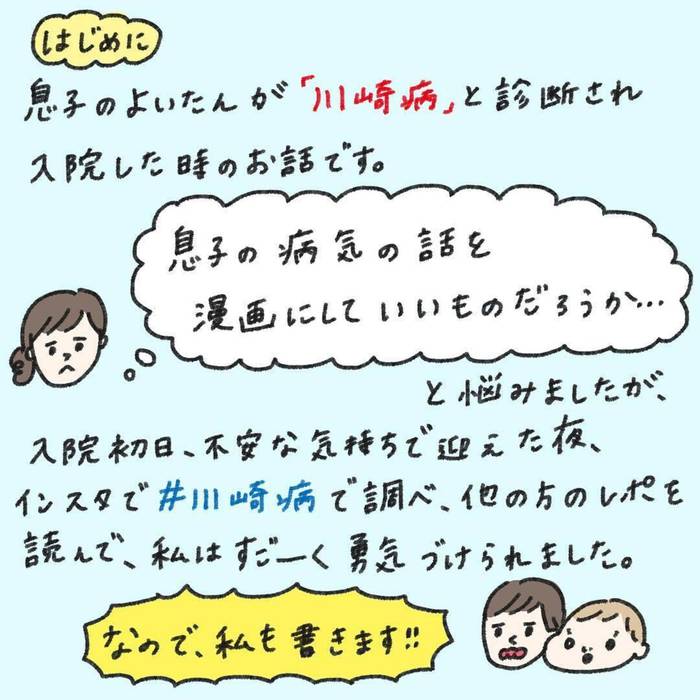 はじめに
息子のよいたんが「川崎病」と診断され
入院した時のお話です。
息子の病気の話を
漫画にしていいものだろうか…
と悩みましたが、
入院初日、不安な気持ちで迎えた夜、
インスタで#川崎病で調べ、他の方のレポを
読んで、私はすごーく勇気づけられました。
なので、私も書きます!!